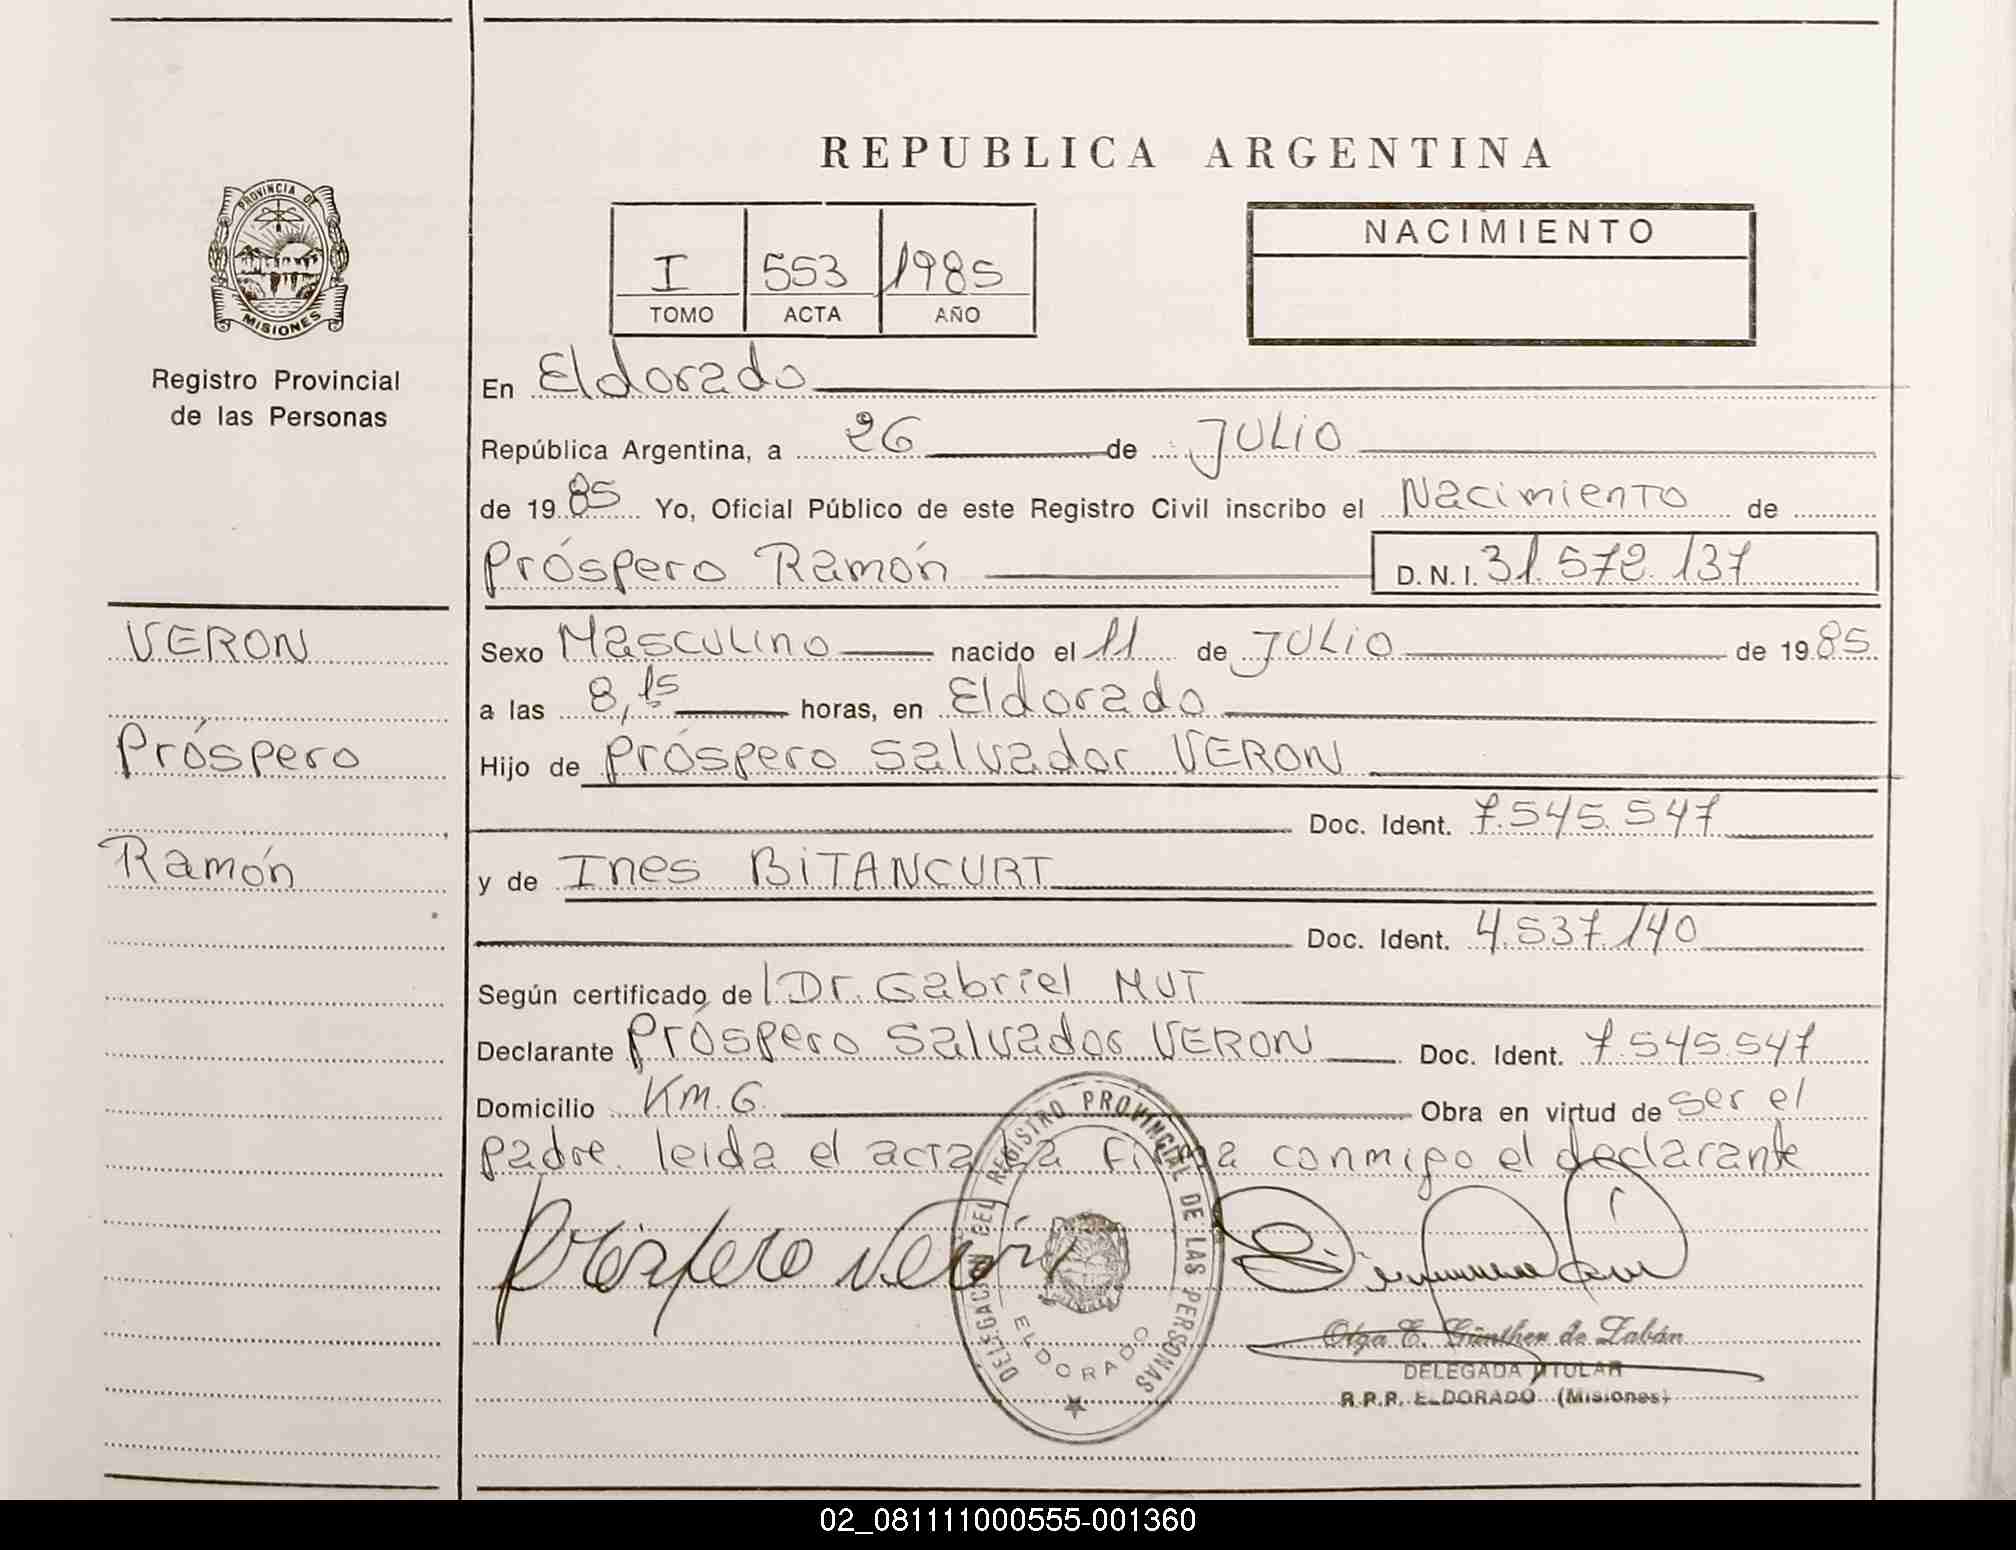 REPUBLICA ARGENTINA
PROVINCIA DE
MISIONES
Registro Provincial
de las Personas
I 553 1985
TOMO ACTA AÑO
NACIMIENTO
En Eldorado
República Argentina, a 26 de JULIO
de 1985 Yo, Oficial Público de este Registro Civil inscribo el Nacimiento de
Próspero Ramón D. N. I. 31.572.137
VERON
Próspero
Ramón
Sexo Masculino nacido el 11 de JULIO de 1985
a las 8,15 horas, en Eldorado
Hijo de Próspero Salvador VERON
Doc. Ident. 7.545.547
y de Ines BiTANCURT
Doc. Ident. 4.537.140
Según certificado de Dr. Gabriel MUT
Declarante Próspero Salvador VERON Doc. Ident. 7.545.547
Domicilio KM. 6. Obra en virtud de ser el
padre. leida el acta la firma conmigo el declarante
Próspero Verón
DELEGACION DEL REGISTRO PROVINCIAL DE LAS PERSONAS
ELDORADO
Olga E. Günther de Labán
DELEGADA TITULAR
R.P.P. ELDORADO (Misiones)
02_081111000555-001360